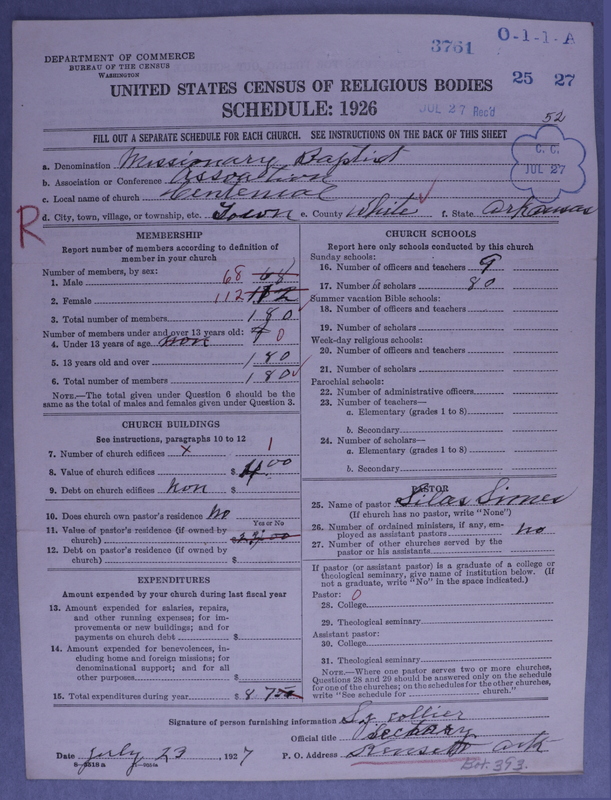 3761
O-1-1-A
DEPARTMENT OF COMMERCE
BUREAU OF THE CENSUS
WASHINGTON
25 27
UNITED STATES CENSUS OF RELIGIOUS BODIES
SCHEDULE: 1926
JUL 27 Rec'd
52
FILL OUT A SEPARATE SCHEDULE FOR EACH CHURCH. SEE INSTRUCTIONS ON THE BACK OF THIS SHEET
C. C.
JUL 27
a. Denomination Missionary Baptist
b. Association or Conference
c. Local name of church Centenial
d. City, town, village, or township, etc. Town e. County White f. State Arkansas
R
MEMBERSHIP
Report number of members according to definition of
member in your church
Number of members, by sex:
1. Male 68 68
2. Female 112 112
3. Total number of members 180
Number of members under and over 13 years old:
4. Under 13 years of age non 0
5. 13 years old and over 180
6. Total number of members 180
NOTE.—The total given under Question 6 should be
same as the total of males and females given under Question 3.
CHURCH BUILDINGS
See instructions, paragraphs 10 to 12
7. Number of church edifices x 1
8. Value of church edifices $
9. Debt on church edifices non $
10. Does church own pastor's residence no
Yes or No
11. Value of pastor's residence (if owned by
church) $
12. Debt on pastor's residence (if owned by
church) $
EXPENDITURES
Amount expended by your church during last fiscal year
13. Amount expended for salaries, repairs,
and other running expenses; for im-
provements or new buildings; and for
payments on church debt $
14. Amount expended for benevolences, in-
cluding home and foreign missions; for
denominational support; and for all
other purposes $
15. Total expenditures during year $
CHURCH SCHOOLS
Report here only schools conducted by this church
Sunday schools:
16. Number of officers and teachers 9
17. Number of scholars 80
Summer vacation Bible schools:
18. Number of officers and teachers
19. Number of scholars
Week-day religious schools:
20. Number of officers and teachers
21. Number of scholars
Parochial schools:
22. Number of administrative officers
23. Number of teachers—
a. Elementary (grades 1 to 8)
b. Secondary
24. Number of scholars—
a. Elementary (grades 1 to 8)
b. Secondary
PASTOR
25. Name of pastor Silas Simes
(If church has no pastor, write "None")
26. Number of ordained ministers, if any, em-
ployed as assistant pastors no
27. Number of other churches served by the
pastor or his assistants
If pastor (or assistant pastor) is a graduate of a college or
theological seminary, give name of institution below. (If
not a graduate, write "No" in the space indicated.)
Pastor: 0
28. College
29. Theological seminary
Assistant pastor:
30. College
31. Theological seminary
NOTE.—Where one pastor serves two or more churches,
Questions 28 and 29 should be answered only on the schedule
for one of the churches; on the schedules for the other churches,
write "See schedule for church."
Signature of person furnishing information collier
Official title
Date July 23, 1927 P. O. Address Kensett Ark
BH. 393